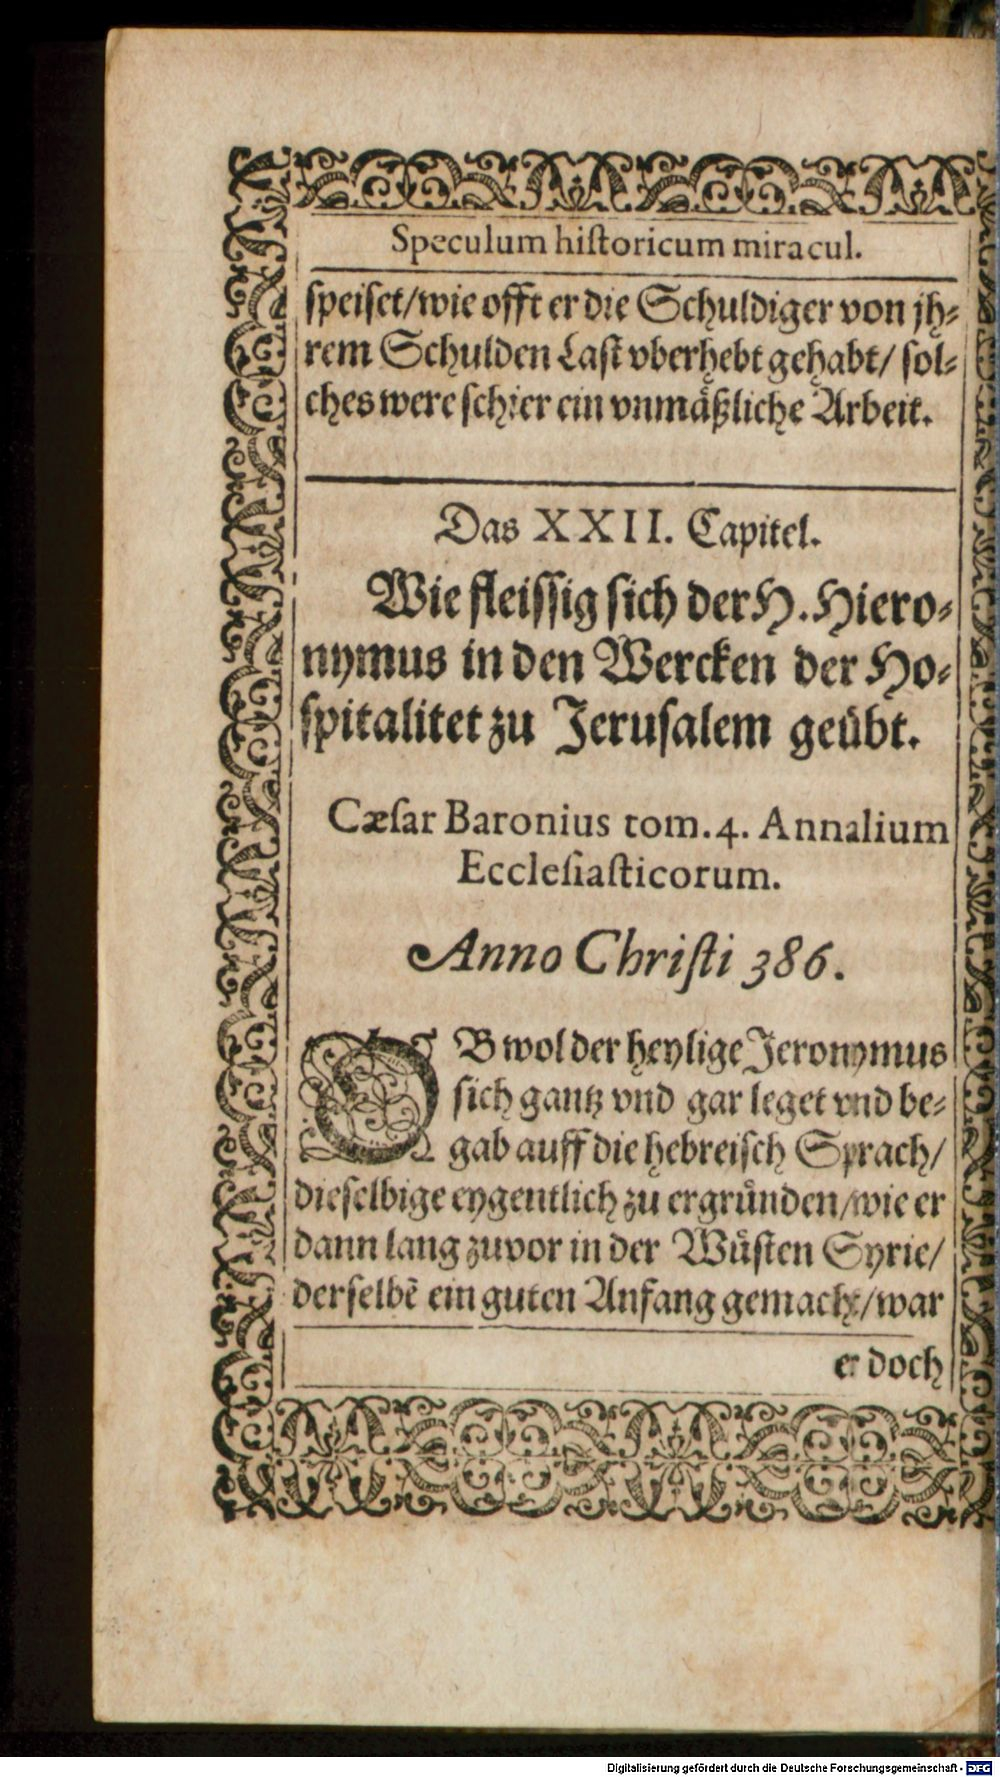 Speculum historicum miracul.
speiset/wie offt er die Schuldiger von jh⸗
rem Schulden Last vberhebt gehabt/ sol⸗
ches were schier ein vnmäßliche Arbeit.
Das XXII. Capitel.
Wie fleissig sich der H. Hiero⸗
nymus in den Wercken der Ho⸗
spitalitet zu Jerusalem geübt.
Cæsar Baronius tom. 4. Annalium
Ecclesiasticorum.
Anno Christi 386.
OB wol der heylige Jeronymus
sich gantz vnd gar leget vnd be⸗
gab auff die hebreisch Sprach/
dieselbige eygentlich zu ergründen/wie er
dann lang zuvor in der Wüsten Syrie/
derselbē ein guten Anfang gemacht/war
er doch
Digitalisierung gefördert durch die Deutsche Forschungsgemeinschaft - DFG